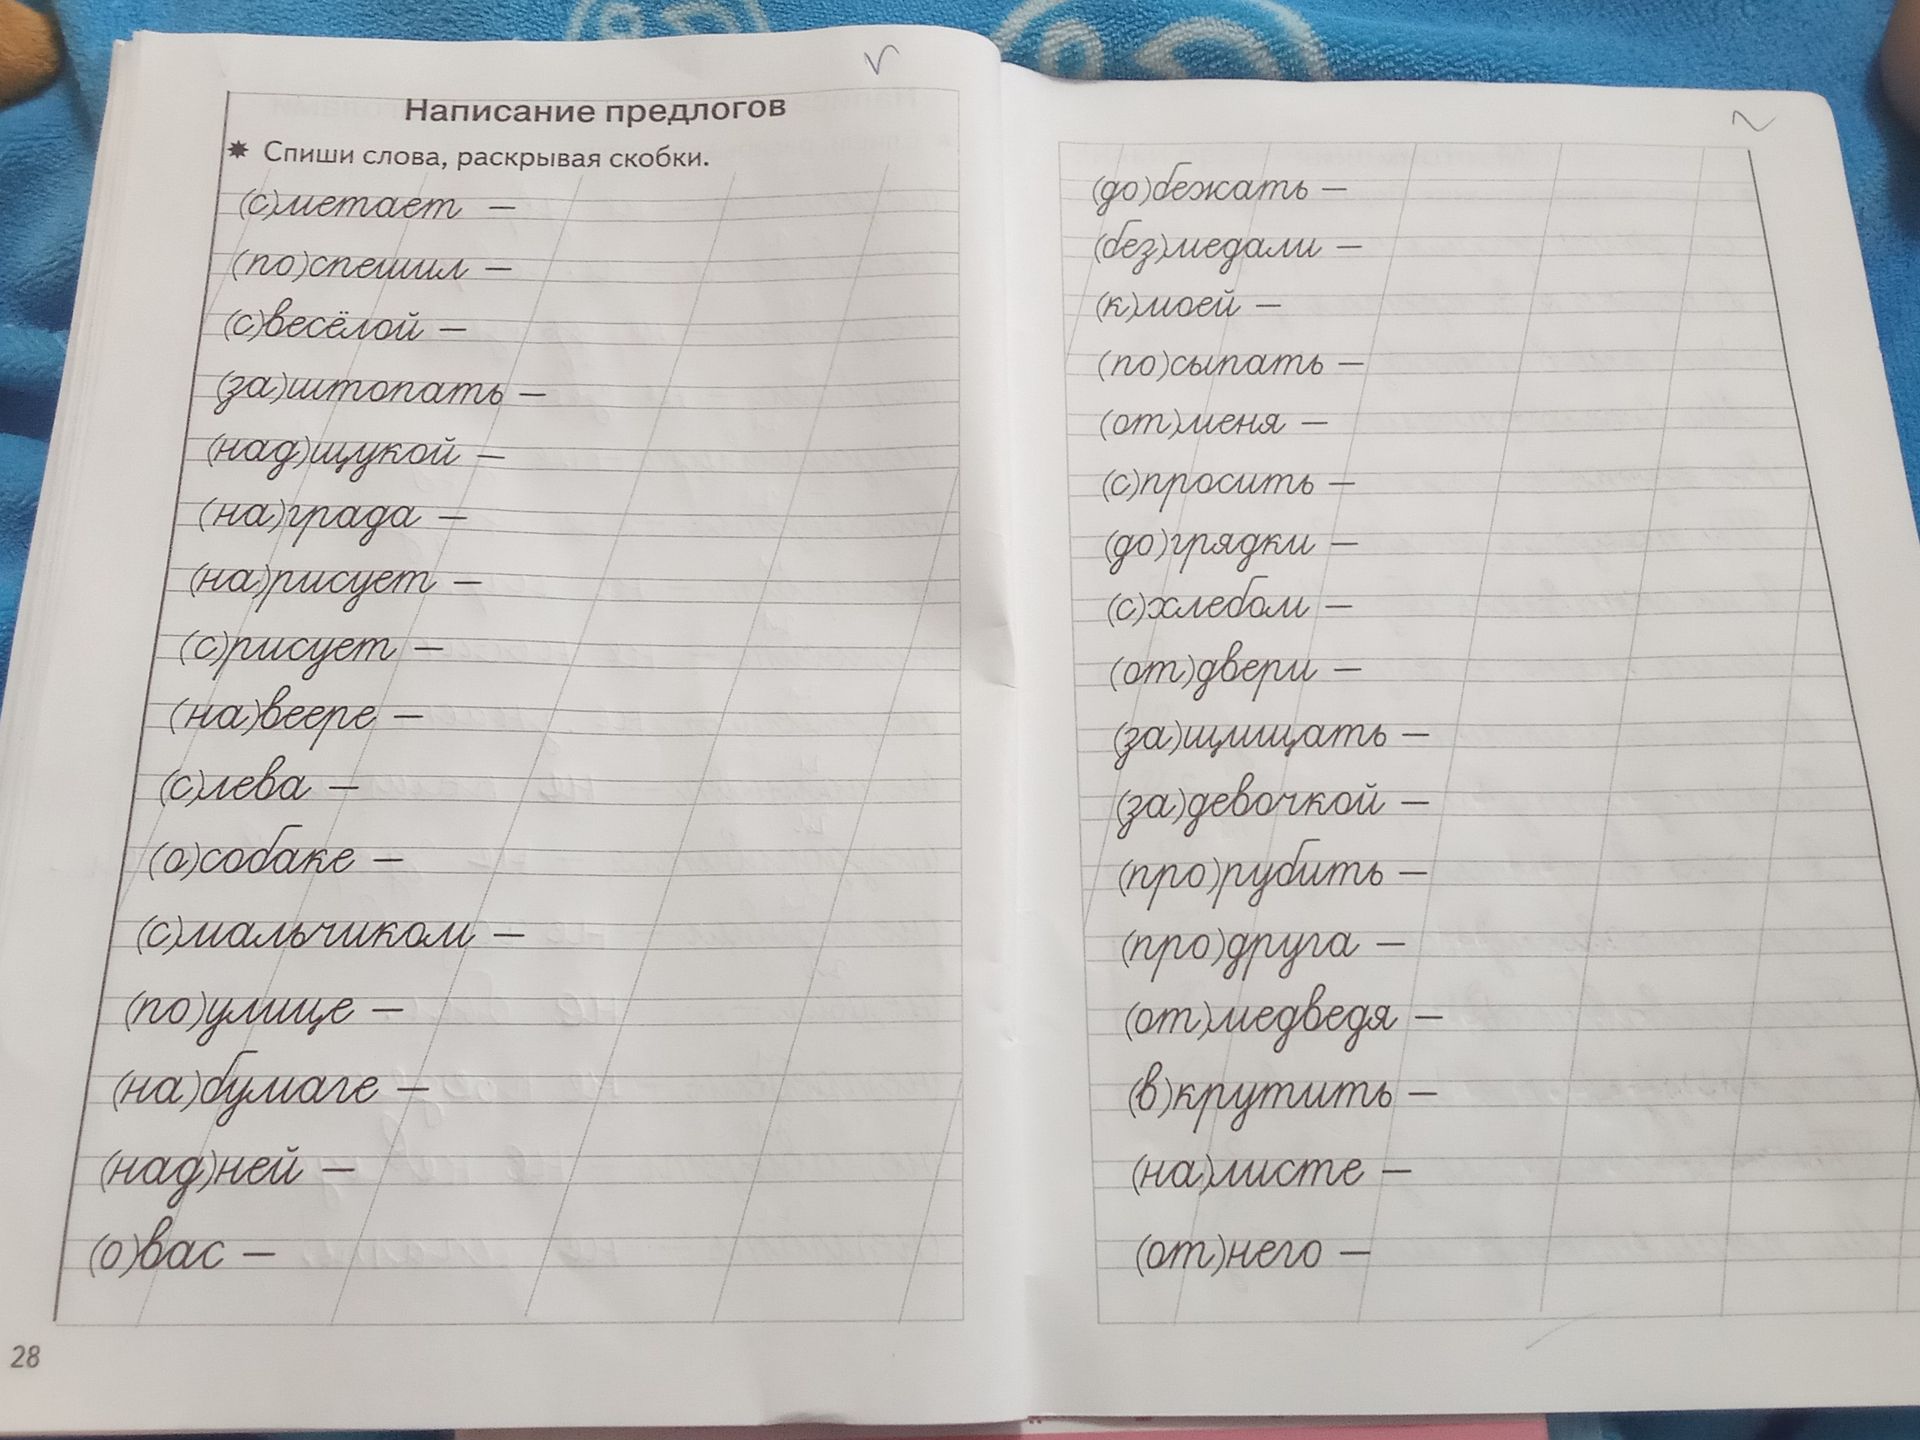 Написание предлогов
Спиши слова, раскрывая скобки.
(с)метает —
(по)спешил —
(с)весёлой —
(за)штопать —
(над)щукой —
(на)града —
(на)рисует —
(с)рисует —
(на)веере —
(с)лева —
(о)собаке —
(с)мальчиком —
(по)улице —
(на)бумаге —
(над)ней —
(о)вас —
28
(до)бежать —
(без)медали —
(к)моей —
(по)сыпать —
(от)меня —
(с)просить —
(до)грядки —
(с)хлебом —
(от)двери —
(за)щищать —
(за)девочкой —
(про)рубить —
(про)друга —
(от)медведя —
(в)крутить —
(на)листе —
(от)него —